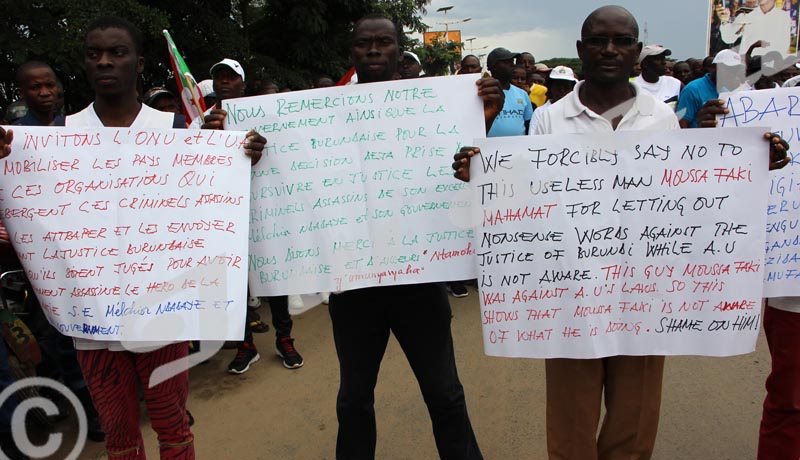 INVITONS L'ONU et L'U.A
MOBILISER LES PAYS MEMBRES
CES ORGANISATIONS QUI
BERGENT CES CRIMINELS ASSASSINS
LES ATTRAPER ET LES ENVOYER
LA JUSTICE BURUNDAISE
QU'ILS SOIENT JUGÉS POUR AVOIR
MENT ASSASSINE LE HERO DE LA
S.E Melchior NDADAYE ET
NOUS REMERCIONS NOTRE
VERNEMENT AINSI QUE LA
TICE BURUNDAISE POUR LA
DECISION DEJA PRISE
URSUIVRE EN JUSTICE LES
CRIMINELS ASSASSINS DE SON EXCELL
Melchior NDADAYE ET SON GOUVERNEMENT
NOUS DISONS MERCI A LA JUSTICE
BURUNDAISE ET
WE FORCIBLY SAY NO TO
THIS USELESS MAN MOUSSA FAKI
MAHAMAT FOR LETTING OUT
NONSENSE WORDS AGAINST THE
JUSTICE OF BURUNDI WHILE A.U
IS NOT AWARE. THIS GUY MOUSSA FAKI
WAS AGAINST A.U'S LAWS. SO THIS
SHOWS THAT MOUSSA FAKI IS NOT AWARE
OF WHAT HE IS DOING. SHAME ON HIM!